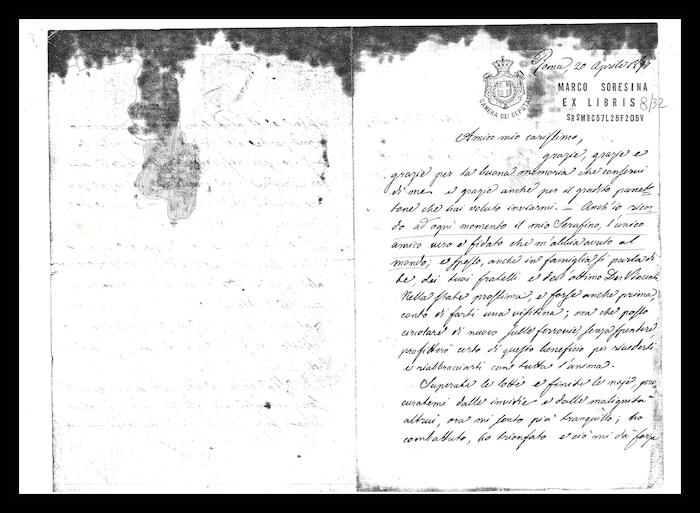 Roma, 20 Aprile 1897
CAMERA DEI DEPUTATI
MARCO SORESINA
EX LIBRIS 8/32
SRSMRC57L25F205V
Amico mio carissimo,
grazie, grazie e
grazie per la buona memoria che conservi
di me e grazie anche per il gradito panet=
tone che hai voluto inviarmi. — Anch'io ricor=
do ad ogni momento il mio Serafino, l'unico
amico vero e fidato che m'abbia avuto al
mondo; e spesso, anche in famiglia si parla di
te, dei tuoi fratelli e dell'ottimo Des
Nella state prossima, e forse anche prima,
conto di farti una visitina; ora che posso
circolare di nuovo sulle ferrovie senza spendere
profitterò certo di questo beneficio per rivederti
e riabbracciarti con tutta l'anima.
Superate le lotte e finite le noje, pro=
curatemi dalle invidie e dalle malignità
altrui, ora mi sento più tranquillo; ho
combattuto, ho trionfato e ciò mi dà forza